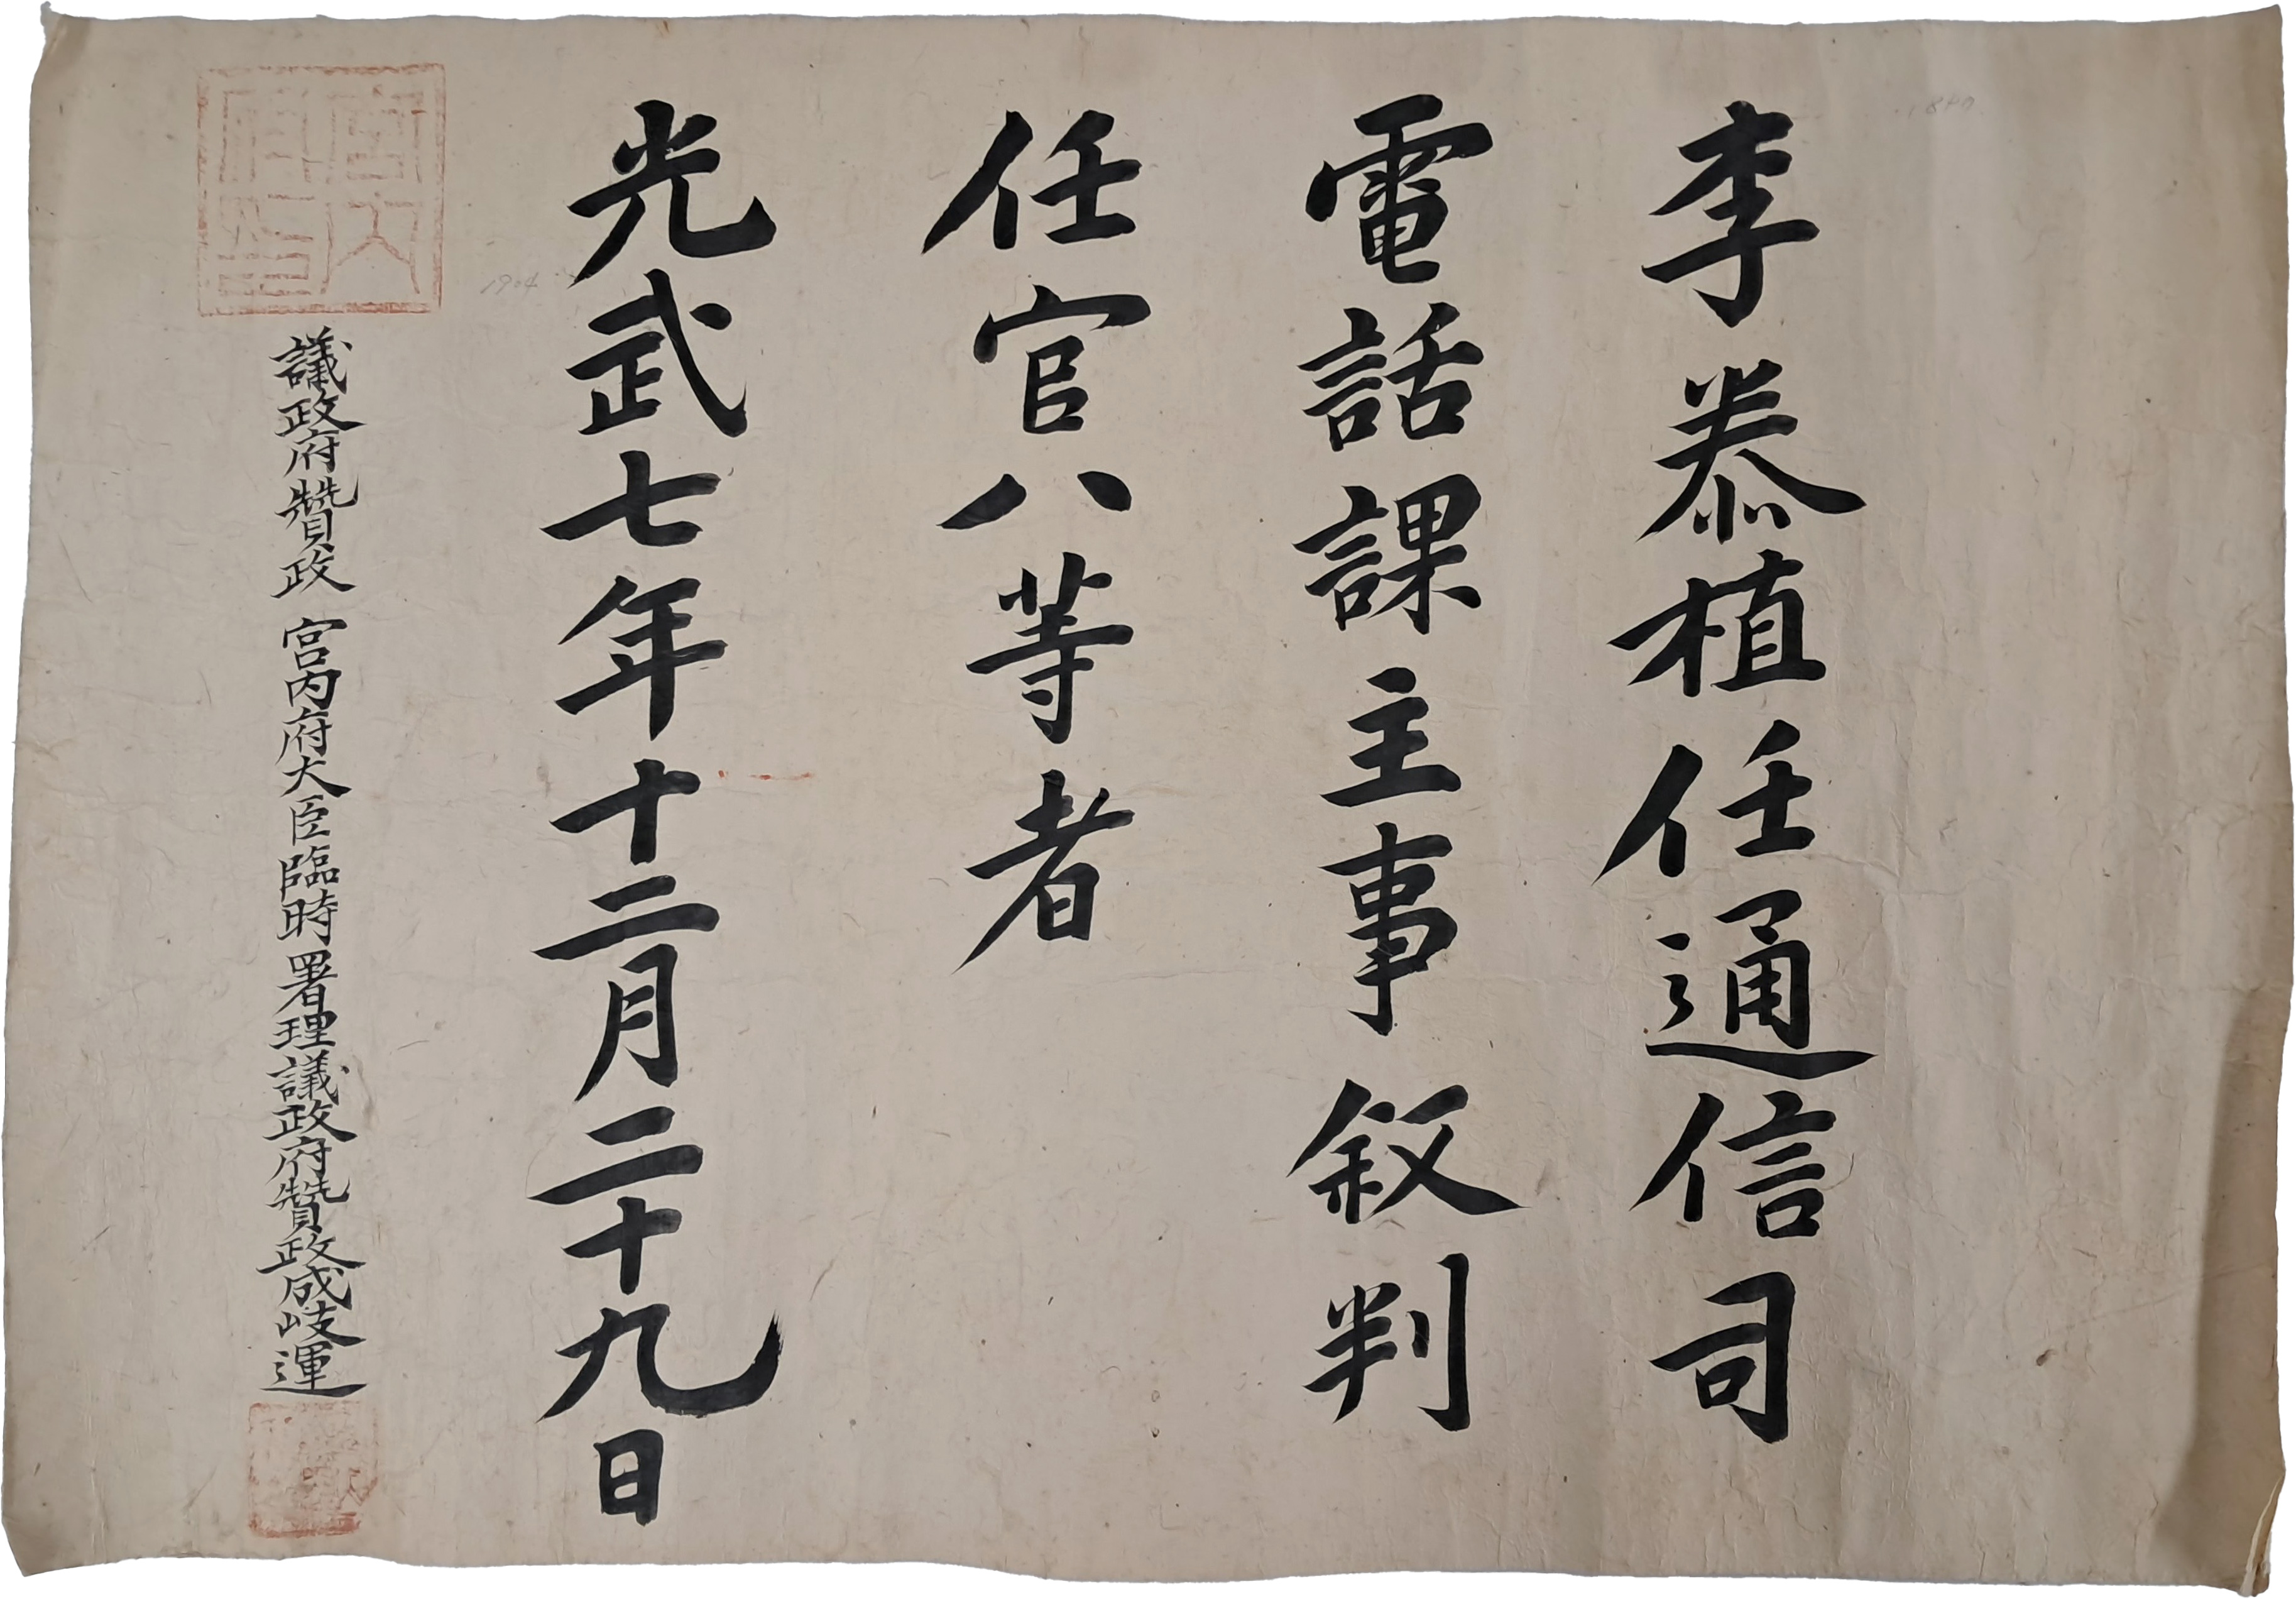 李泰植任通信司
電話課主事叙判
任官八等者
光武七年十二月二十九日
議政府贊政 宮内府大臣臨時署理議政府贊政成岐運
宮内府印
1904